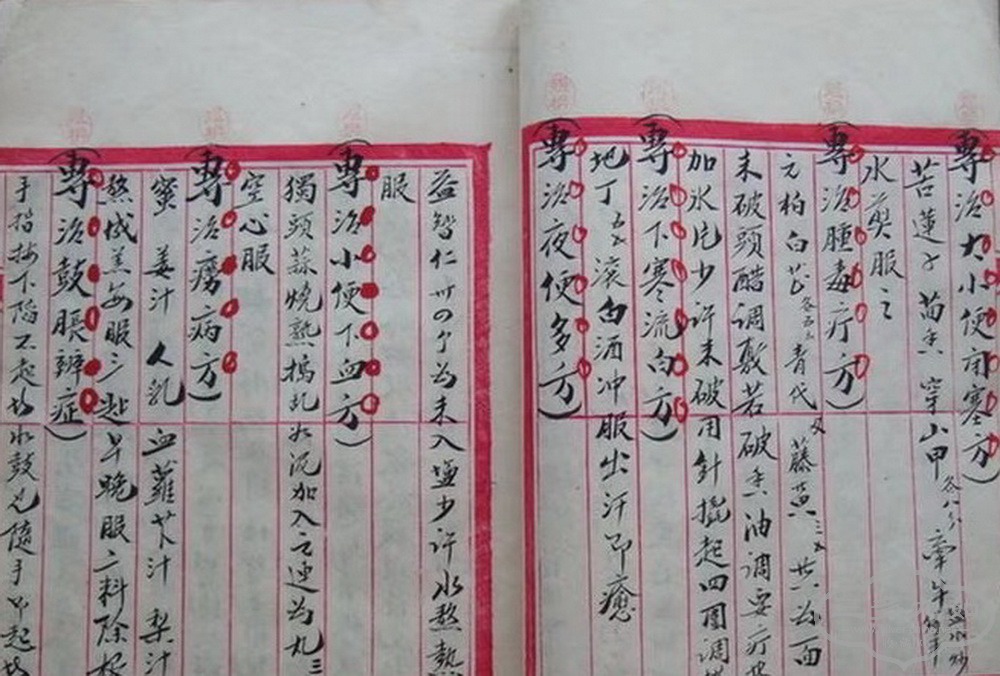 (專治大小便閉塞方)
苦蓮子 茴香 穿山甲各八分 牽牛
水煎服之
(專治腫毒疔方)
元柏白芷各五分青代 藤黃三 共為面
未破頭醋調敷若破香油調要疔
加冰片少許未破用針撓起四圍調
(專治下寒流白方)
地丁 滚白酒冲服出汗即癒
(專治夜便多方)
益智仁廿四个為末入塩少許水熬熱
服
(專治小便下血方)
獨頭蒜燒熟搗乱如泥加入之連為丸三
空心服
(專治癆病方)
蜜 姜汁 人乳 血 蘿卜汁 梨汁
熬成羔每服三匙早晚服二料除根
(專治鼓脹辨症)
手指按下陷不起 水鼓也隨手即起